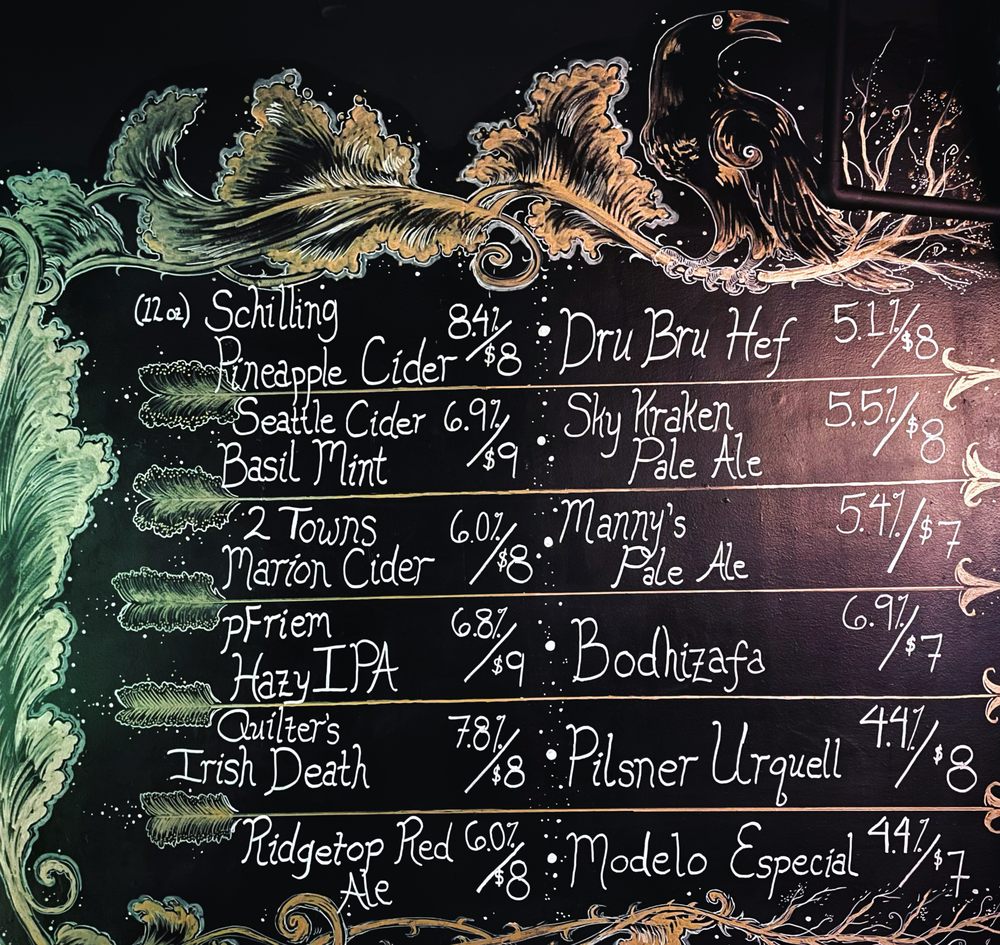 (12 oz) Schilling 8.4%/$8
Pineapple Cider
Seattle Cider 6.9%/$9
Basil Mint
2 Towns 6.0%/$8
Marion Cider
pFriem 6.8%/$9
Hazy IPA
Quilter's 7.8%/$8
Irish Death
Ridgetop Red 6.0%/$8
Ale
Dru Bru Hef 5.1%/$8
Sky Kraken 5.5%/$8
Pale Ale
Manny's 5.4%/$7
Pale Ale
Bodhizafa 6.9%/$7
Pilsner Urquell 4.4%/$8
Modelo Especial 4.4%/$7